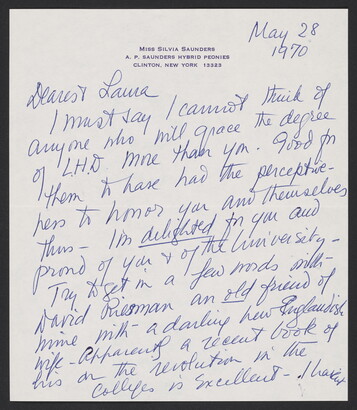 May 28
1970
MISS SILVIA SAUNDERS
A. P. SAUNDERS HYBRID PEONIES
CLINTON, NEW YORK 13323
Dearest Laura
I must say I cannot think of
anyone who will grace the degree
of L.H.D. more than you. Good for
them to have had the perceptive-
ness to honor you and themselves
thus - I'm delighted for you and
proud of you & of the University -
Try to get in a few words with
David Riesman an old friend of
mine with a darling new Englandish
wife - Apparently a recent book of
his on the revolution in the
colleges is excellent - I haven't